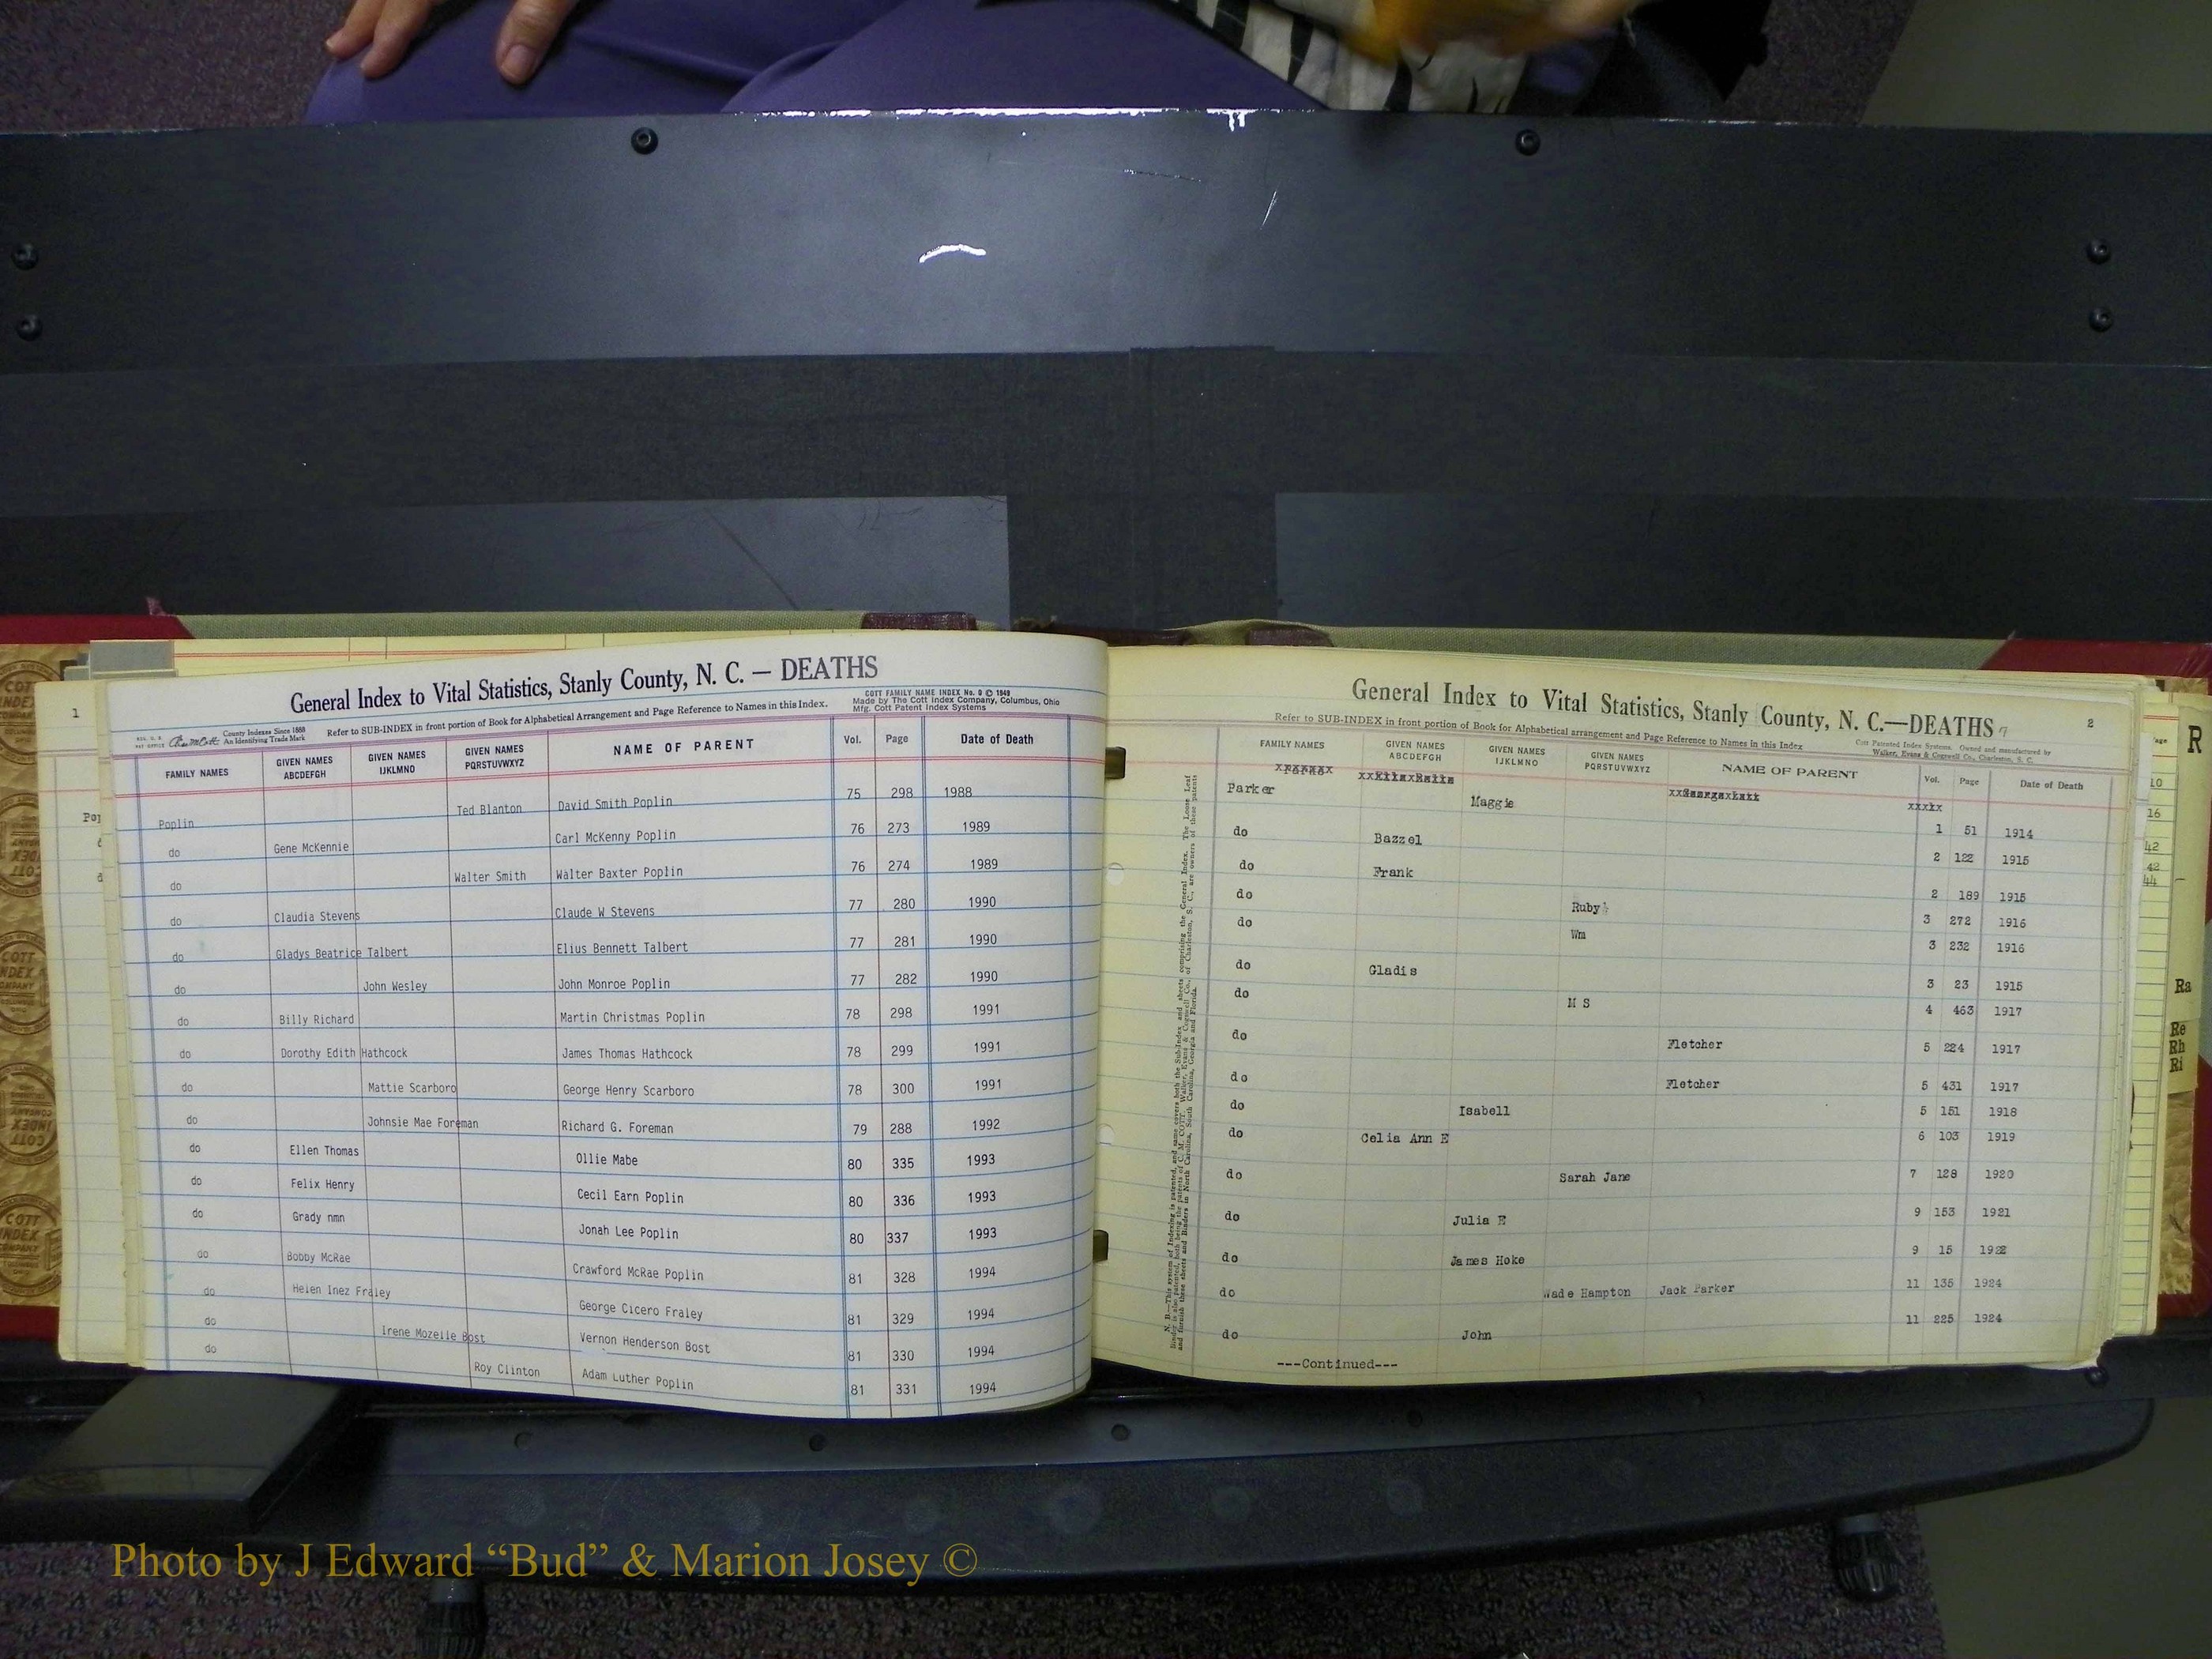 General Index to Vital Statistics, Stanly County, N. C. — DEATHS
COTT FAMILY NAME INDEX No. 0 © 1949
Made by The Cott Index Company, Columbus, Ohio
Mfg. Cott Patent Index Systems
County Indexes Since 1888
An Identifying Trade Mark
Refer to SUB-INDEX in front portion of Book for Alphabetical Arrangement and Page Reference to Names in this Index.
FAMILY NAMES GIVEN NAMES ABCDEFGH GIVEN NAMES IJKLMNO GIVEN NAMES PQRSTUVWXYZ NAME OF PARENT Vol. Page Date of Death
Poplin Ted Blanton David Smith Poplin 75 298 1988
do Gene McKennie Carl McKenny Poplin 76 273 1989
do Walter Smith Walter Baxter Poplin 76 274 1989
do Claudia Stevens Claude W Stevens 77 280 1990
do Gladys Beatrice Talbert Elius Bennett Talbert 77 281 1990
do John Wesley John Monroe Poplin 77 282 1990
do Billy Richard Martin Christmas Poplin 78 298 1991
do Dorothy Edith Hathcock James Thomas Hathcock 78 299 1991
do Mattie Scarboro George Henry Scarboro 78 300 1991
do Johnsie Mae Foreman Richard G. Foreman 79 288 1992
do Ellen Thomas Ollie Mabe 80 335 1993
do Felix Henry Cecil Earn Poplin 80 336 1993
do Grady nmn Jonah Lee Poplin 80 337 1993
do Bobby McRae Crawford McRae Poplin 81 328 1994
do Helen Inez Fraley George Cicero Fraley 81 329 1994
do Irene Mozelle Bost Vernon Henderson Bost 81 330 1994
do Roy Clinton Adam Luther Poplin 81 331 1994
General Index to Vital Statistics, Stanly County, N. C.—DEATHS 2
Refer to SUB-INDEX in front portion of Book for Alphabetical arrangement and Page Reference to Names in this Index
Cott Patented Index Systems. Owned and manufactured by
Walker, Evans & Cogswell Co., Charleston, S. C.
FAMILY NAMES GIVEN NAMES ABCDEFGH GIVEN NAMES IJKLMNO GIVEN NAMES PQRSTUVWXYZ NAME OF PARENT Vol. Page Date of Death
Parker Maggie 1 51 1914
do Bazzel 2 122 1915
do Frank 2 189 1915
do Ruby 3 272 1916
do Wm 3 232 1916
do Gladis 3 23 1915
do M S 4 463 1917
do Fletcher 5 224 1917
do Fletcher 5 431 1917
do Isabell 5 151 1918
do Celia Ann E 6 103 1919
do Sarah Jane 7 128 1920
do Julia E 9 153 1921
do James Hoke 9 15 1922
do Wade Hampton Jack Parker 11 135 1924
do John 11 225 1924
---Continued---
1
R
Ra
Re
Rh
Ri
Photo by J Edward “Bud” & Marion Josey ©